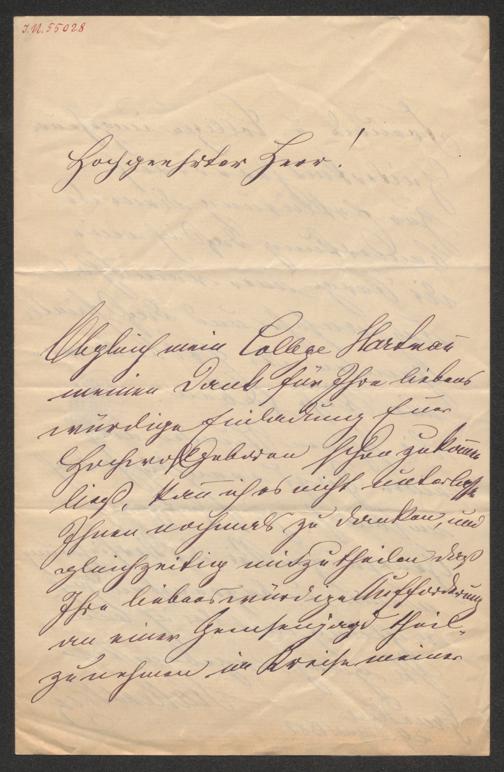 J.N. 55028
Hochgeehrter Herr!
Obgleich mein College Hartman̄
meinen Dank für Ihre liebens
würdige Einladung Euer
Hochwohlgeboren schon zukom̄en
ließ, kan̄ ich es nicht unterlaßen
Ihnen nochmals zu danken, und
gleichzeitig mitzutheilen daß
Ihre liebenswürdige Aufforderung
an einer Gemsenjagd theil-
zunehmen im Kreise meiner